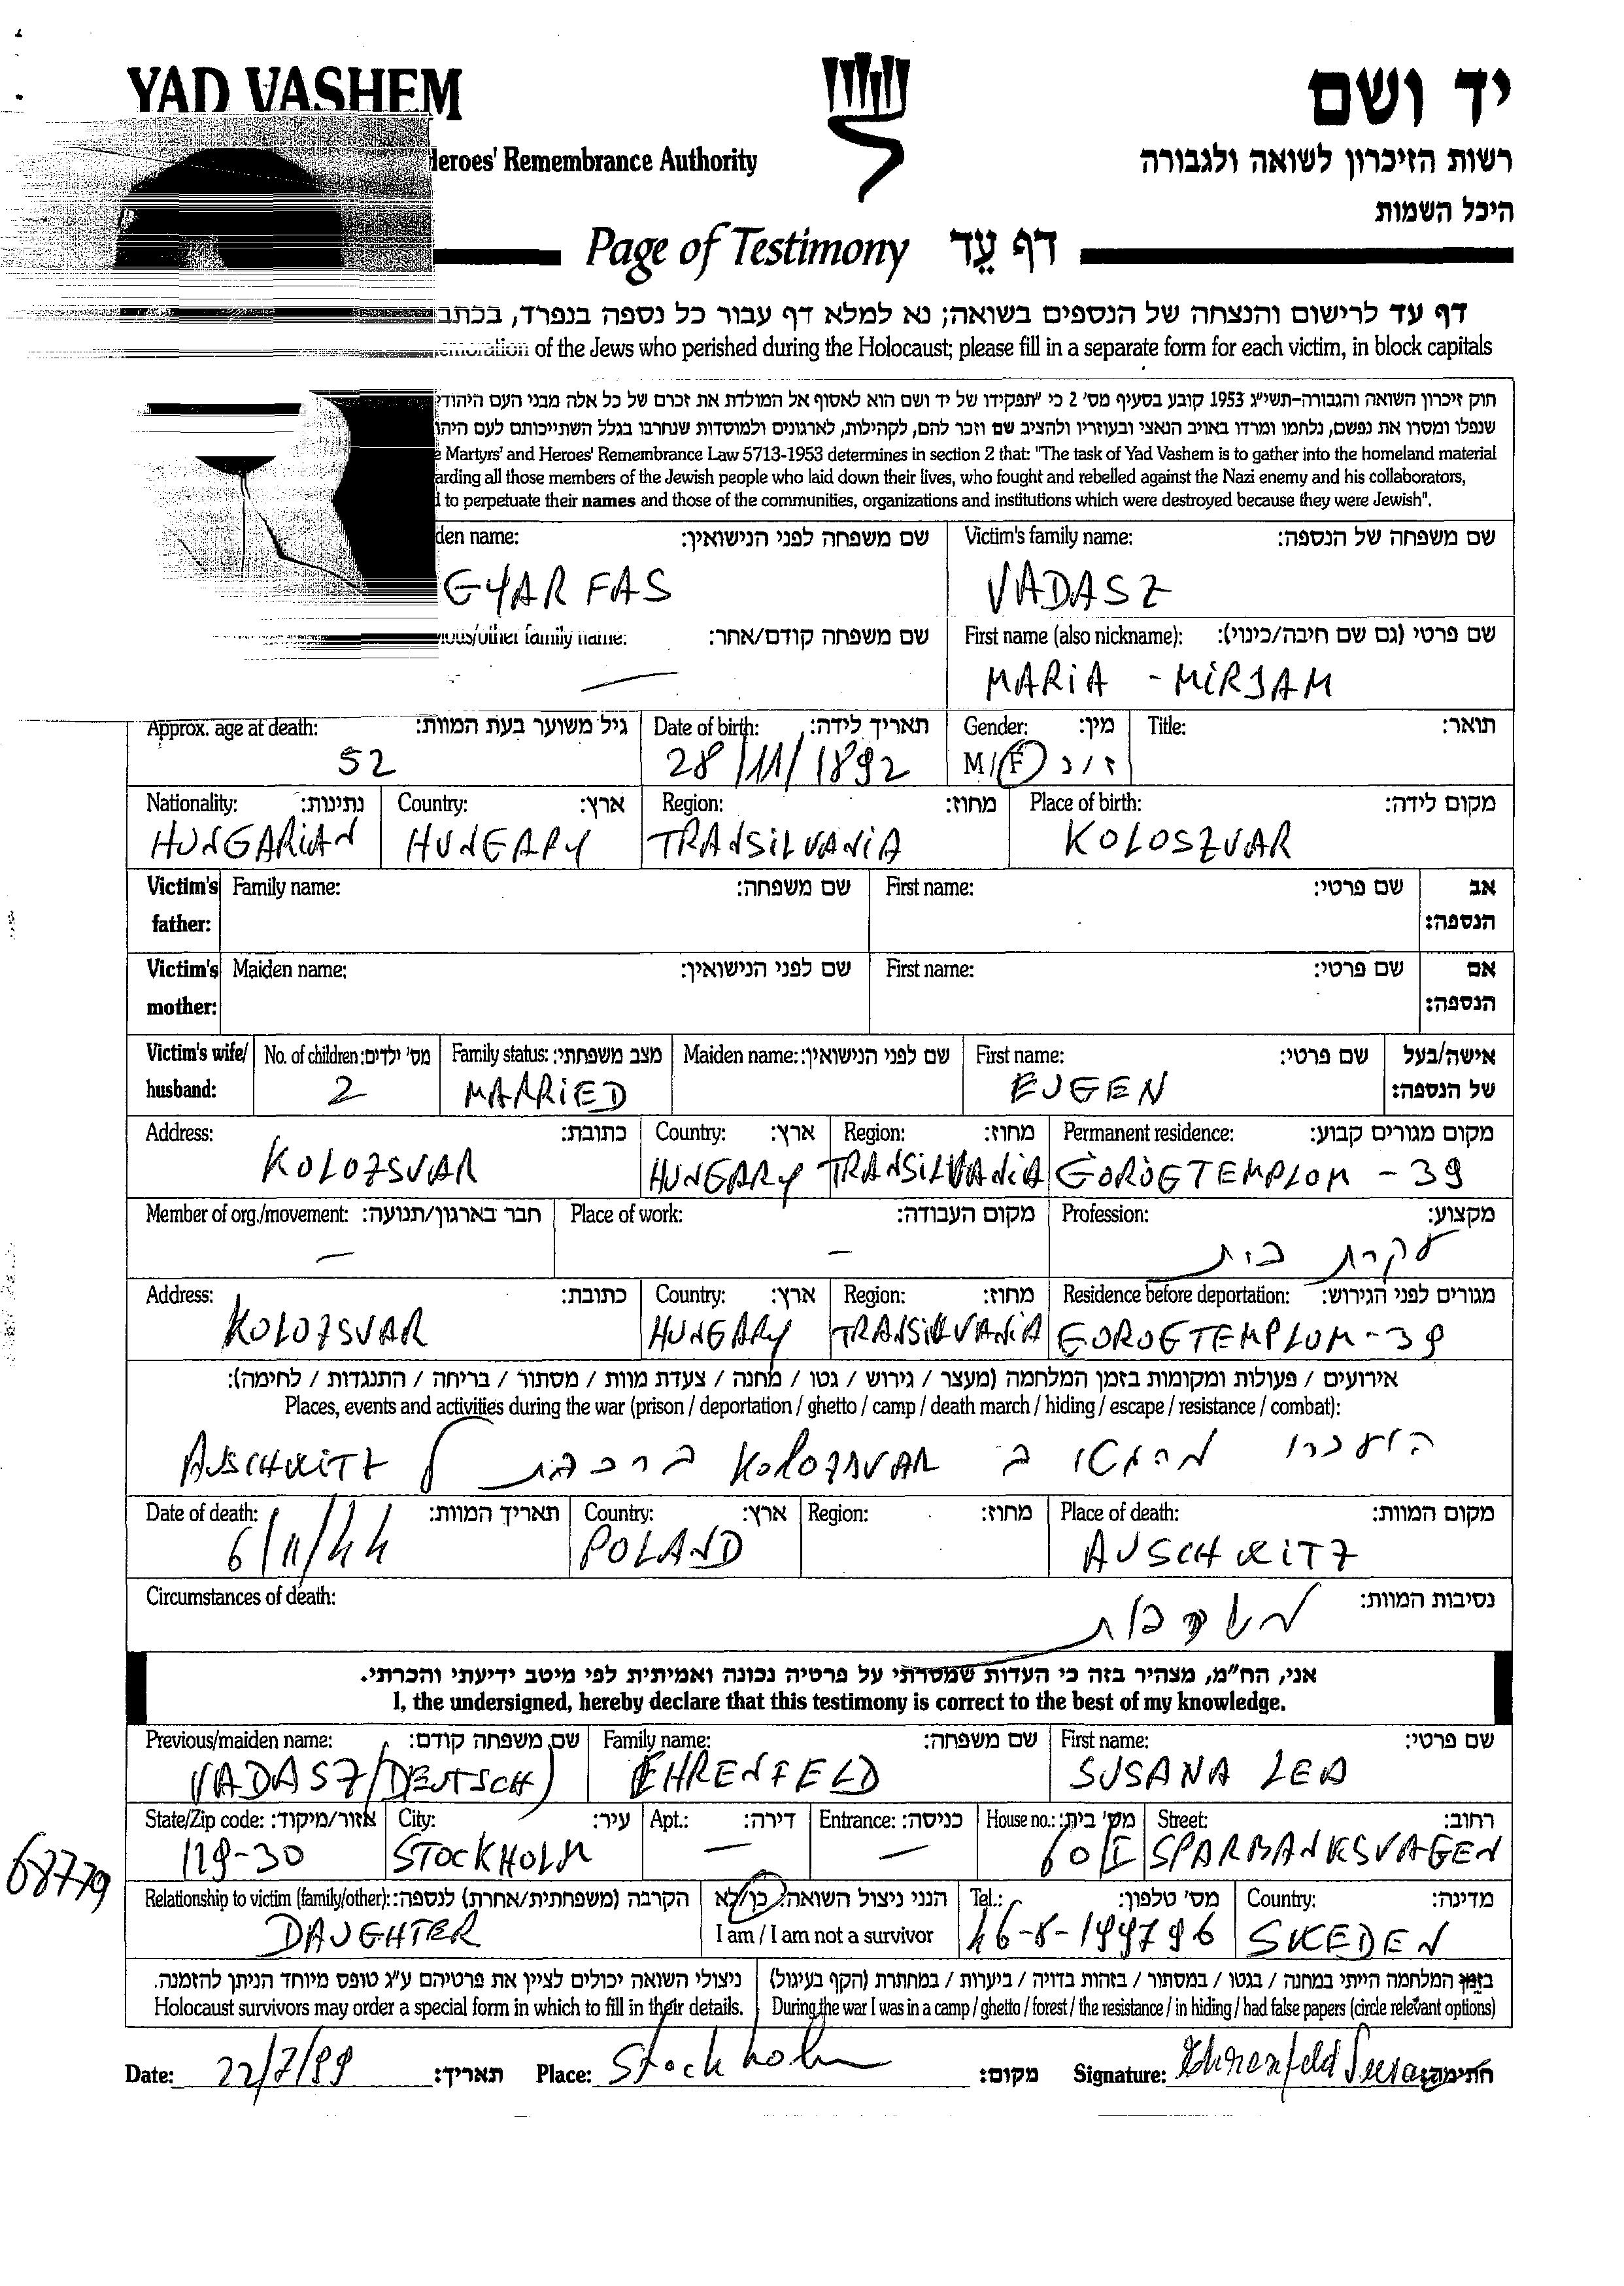 YAD VASHEM
יד ושם
Heroes' Remembrance Authority
רשות הזיכרון לשואה ולגבורה
היכל השמות
Page of Testimony דף עֵד
דף עד לרישום והנצחה של הנספים בשואה; נא למלא דף עבור כל נספה בנפרד, בכתב
of the Jews who perished during the Holocaust; please fill in a separate form for each victim, in block capitals
חוק זיכרון השואה והגבורה–תשי״ג 1953 קובע בסעיף מס' 2 כי "תפקידו של יד ושם הוא לאסוף אל המולדת את זכרם של כל אלה מבני העם היהודי
שנפלו ומסרו את נפשם, נלחמו ומרדו באויב הנאצי ובעוזריו ולהציב שם וזכר להם, לקהילות, לארגונים ולמוסדות שנחרבו בגלל השתייכותם לעם היהו
Martyrs' and Heroes' Remembrance Law 5713-1953 determines in section 2 that: "The task of Yad Vashem is to gather into the homeland material
arding all those members of the Jewish people who laid down their lives, who fought and rebelled against the Nazi enemy and his collaborators,
to perpetuate their names and those of the communities, organizations and institutions which were destroyed because they were Jewish".
den name: שם משפחה לפני הנישואין: Victim's family name: שם משפחה של הנספה:
GYARFAS VADASZ
ious/other family name: שם משפחה קודם/אחר: First name (also nickname): שם פרטי (גם שם חיבה/כינוי):
— MARIA - MIRJAM
Approx. age at death: גיל משוער בעת המוות: Date of birth: תאריך לידה: Gender: מין: Title: תואר:
52 28/11/1892 M/F ז/נ
Nationality: נתינות: Country: ארץ: Region: מחוז: Place of birth: מקום לידה:
HUNGARIAN HUNGARY TRANSILVANIA KOLOSZVAR
Victim's father: Family name: שם משפחה: First name: שם פרטי: אב הנספה:
Victim's mother: Maiden name: שם לפני הנישואין: First name: שם פרטי: אם הנספה:
Victim's wife/ husband: No. of children: מס' ילדים: Family status: מצב משפחתי: Maiden name: שם לפני הנישואין: First name: שם פרטי: אישה/בעל של הנספה:
2 MARRIED EUGEN
Address: כתובת: Country: ארץ: Region: מחוז: Permanent residence: מקום מגורים קבוע:
KOLOZSVAR HUNGARY TRANSILVANIA GÖRÖGTEMPLOM - 39
Member of org./movement: חבר בארגון/תנועה: Place of work: מקום העבודה: Profession: מקצוע:
— — עקרת בית
Address: כתובת: Country: ארץ: Region: מחוז: Residence before deportation: מגורים לפני הגירוש:
KOLOZSVAR HUNGARY TRANSILVANIA GOROGTEMPLOM - 39
אירועים / פעולות ומקומות בזמן המלחמה (מעצר / גירוש / גטו / מחנה / צעדת מוות / מסתור / בריחה / התנגדות / לחימה):
Places, events and activities during the war (prison / deportation / ghetto / camp / death march / hiding / escape / resistance / combat):
הועברו מהגטו ב KOLOZSVAR ברכבת ל AUSCHWITZ
Date of death: תאריך המוות: Country: ארץ: Region: מחוז: Place of death: מקום המוות:
6/11/44 POLAND AUSCHWITZ
Circumstances of death: נסיבות המוות:
משרפות
אני, הח״מ, מצהיר בזה כי העדות שמסרתי על פרטיה נכונה ואמיתית לפי מיטב ידיעתי והכרתי.
I, the undersigned, hereby declare that this testimony is correct to the best of my knowledge.
Previous/maiden name: שם משפחה קודם: Family name: שם משפחה: First name: שם פרטי:
VADASZ/(DEUTSCH) EHRENFELD SUSANA LEA
State/Zip code: אזור/מיקוד: City: עיר: Apt.: דירה: Entrance: כניסה: House no.: מס' בית: Street: רחוב:
129-30 STOCKHOLM — — 60/I SPARBANKSVAGEN
68779
Relationship to victim (family/other): הקרבה (משפחתית/אחרת) לנספה: הנני ניצול השואה: כן/לא Tel.: מס' טלפון: Country: מדינה:
DAUGHTER I am / I am not a survivor 46-8-199796 SWEDEN
ניצולי השואה יכולים לציין את פרטיהם ע״ג טופס מיוחד הניתן להזמנה. בזמן המלחמה הייתי במחנה / בגטו / במסתור / בזהות בדויה / ביערות / במחתרת (הקף בעיגול)
Holocaust survivors may order a special form in which to fill in their details. During the war I was in a camp / ghetto / forest / the resistance / in hiding / had false papers (circle relevant options)
Date: 22/7/99 תאריך: Place: Stockholm מקום: Signature: Ehrenfeld Susana חתימה: